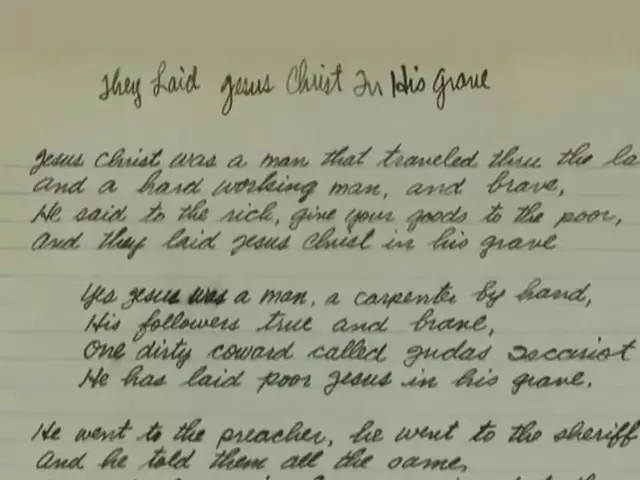 They Laid Jesus Christ In His Grave
Jesus Christ was a man that traveled thru the la
and a hard working man, and brave,
He said to the rich, give your goods to the poor,
And they laid Jesus Christ in his grave
Yes Jesus was a man, a carpenter by hand,
His followers true and brave,
One dirty coward called Judas Iscariot
He has laid poor Jesus in his grave.
He went to the preacher, he went to the sheriff
And he told them all the same,